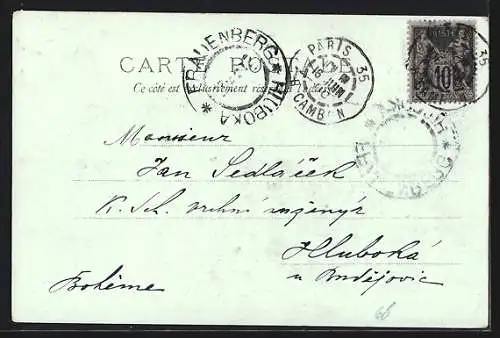 CARTE POSTALE
Ce côté est exclusivement réservé à l'adresse
FRAUENBERG * HLUBOKA *
PARIS 35
R. CAMBON
10
35
Monsieur
Jan Sedláček
K. Sch. vrchní inženýr
Hluboká
u Budějovic
Bohême
66